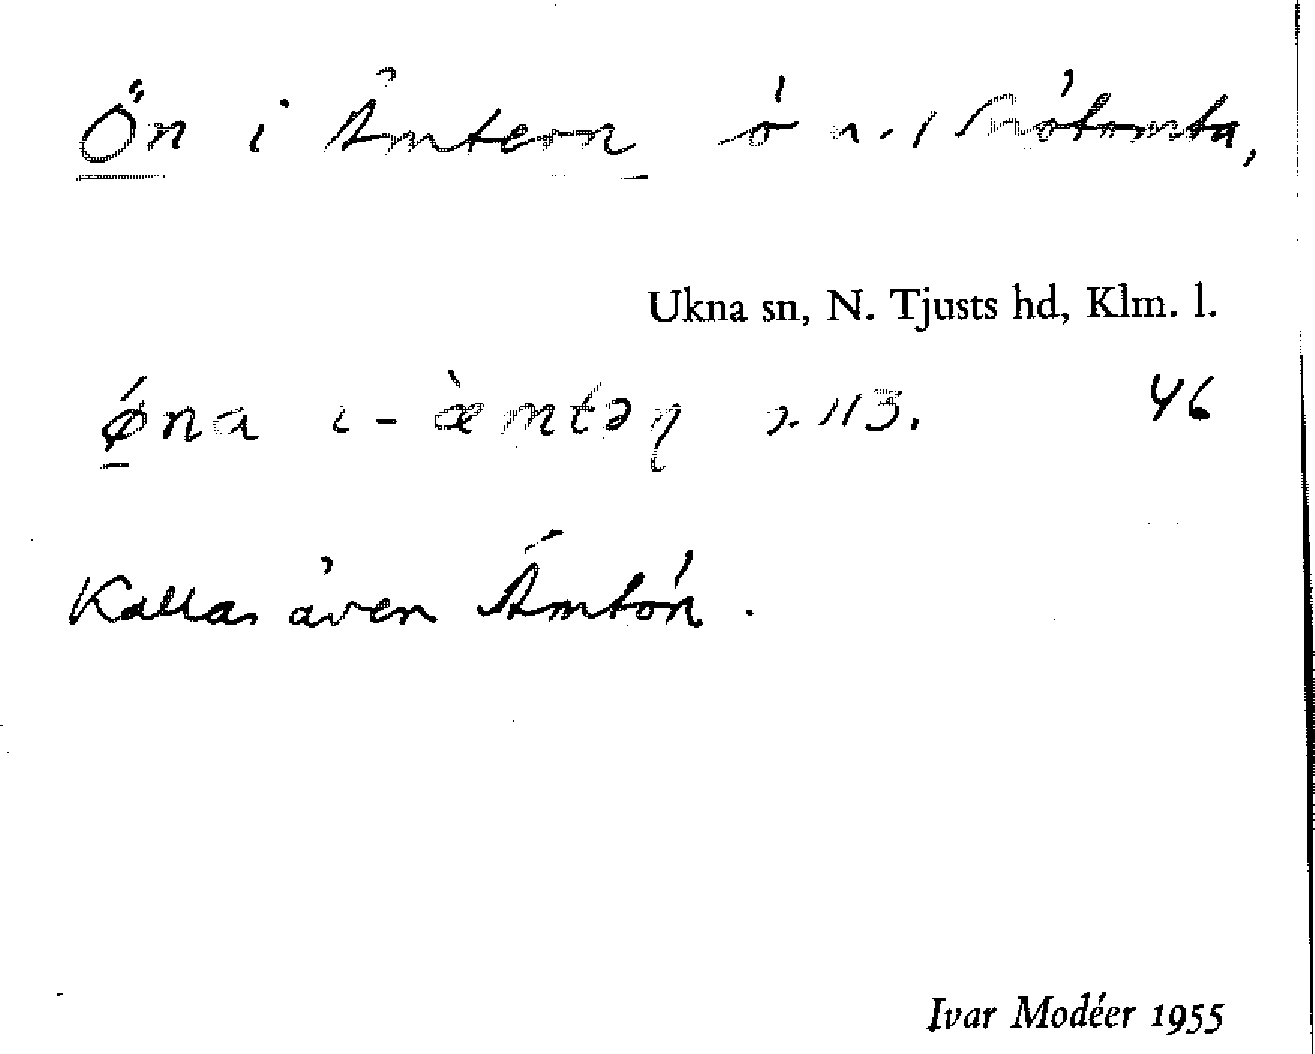 Ön i Ämtern ö n. i Snötomta,
Ukna sn, N. Tjusts hd, Klm. l.
ǿna ɩ- æ̀mtəɳ 113. 46
Kallas även Ämtön.
Ivar Modéer 1955